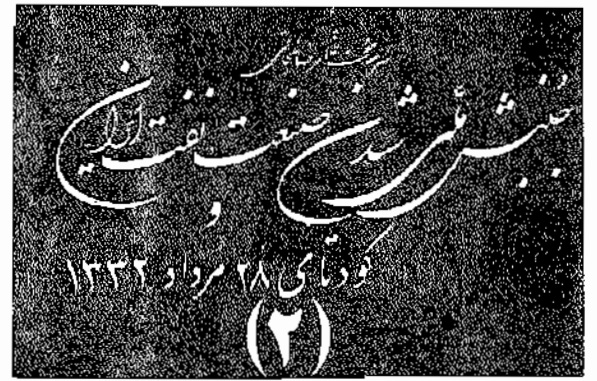 جنبش ملی شدن صنعت نفت ایران
و
کودتای ۲۸ مرداد ۱۳۳۲
(۲)